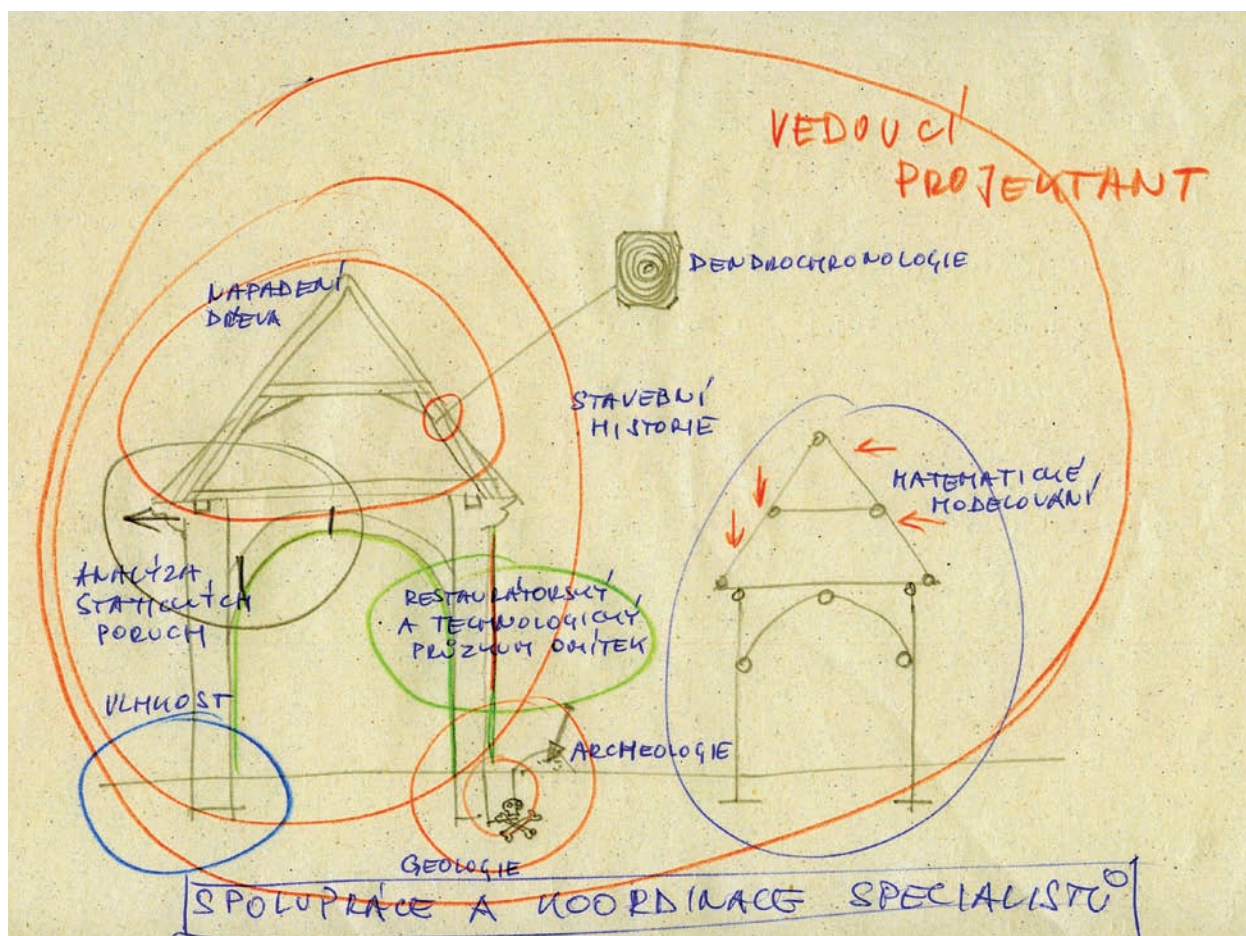 VEDOUCÍ
PROJEKTANT
DENDROCHRONOLOGIE
NAPADENÍ
DŘEVA
STAVEBNÍ
HISTORIE
MATEMATICKÉ
MODELOVÁNÍ
ANALÝZA
STATICKÝCH
PORUCH
RESTAURÁTORSKÝ
A TECHNOLOGICKÝ
PRŮZKUM OMÍTEK
VLHKOST
ARCHEOLOGIE
GEOLOGIE
SPOLUPRÁCE A KOORDINACE SPECIALISTŮ